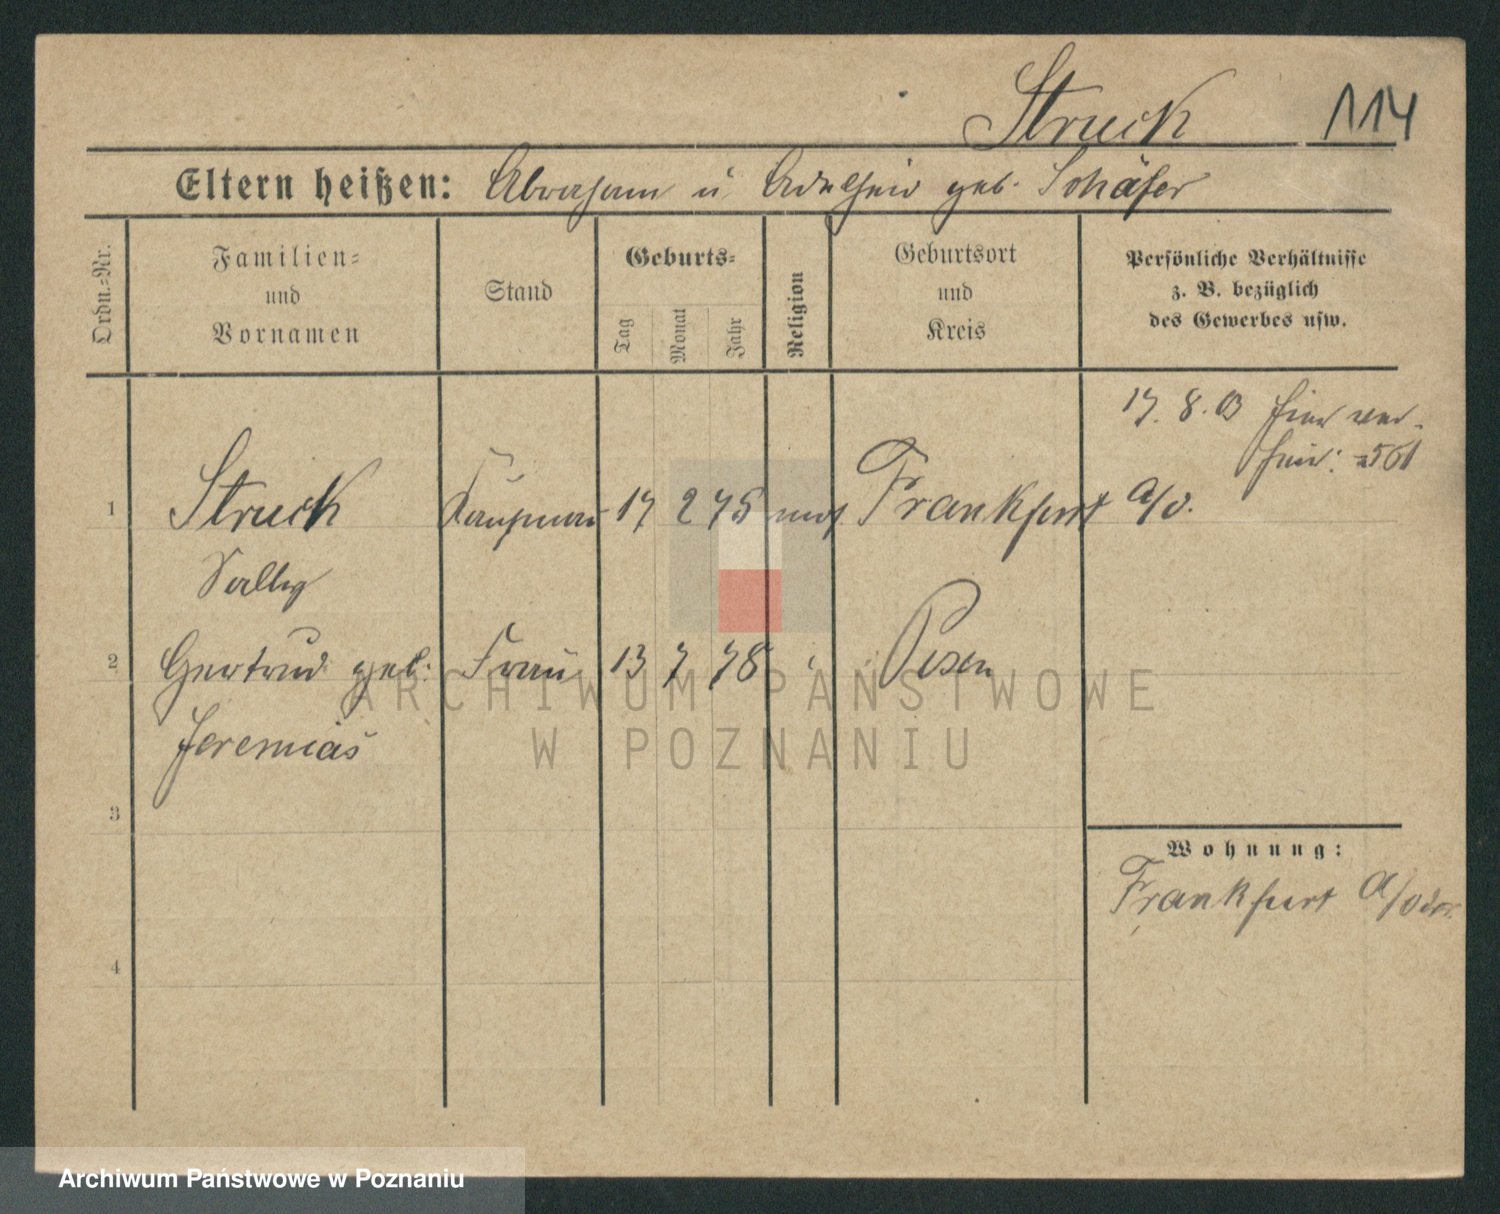 Struck 114
Eltern heißen: Abraham u Adelheid geb. Schäfer
Ordn.-Nr.
Familien-
und
Vornamen
Stand
Geburts-
Tag
Monat
Jahr
Religion
Geburtsort
und
Kreis
Persönliche Verhältnisse
z. B. bezüglich
des Gewerbes usw.
17. 8. 03 hier ver-
heir: 561
1 Struck Kaufmann 17 2 75 mos. Frankfurt a/O.
Sally
2 Gertrud geb: Frau 13 7 78 " Posen
Jeremias
3
4
Wohnung:
Frankfurt a/Oder
ARCHIWUM PAŃSTWOWE
W POZNANIU
Archiwum Państwowe w Poznaniu